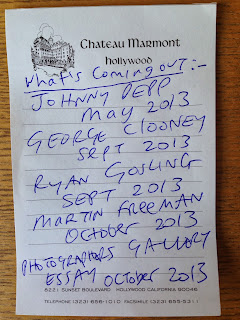 Chateau Marmont
Hollywood
What's Coming out:-
JOHNNY DEPP
MAY 2013
GEORGE CLOONEY
SEPT 2013
RYAN GOSLING
SEPT 2013
MARTIN FREEMAN
OCTOBER 2013
PHOTOGRAPHERS GALLARY
ESSAY OCTOBER 2013
8221 SUNSET BOULEVARD HOLLYWOOD CALIFORNIA 90046
TELEPHONE (323) 656-1010 FACSIMILE (323) 655-5311